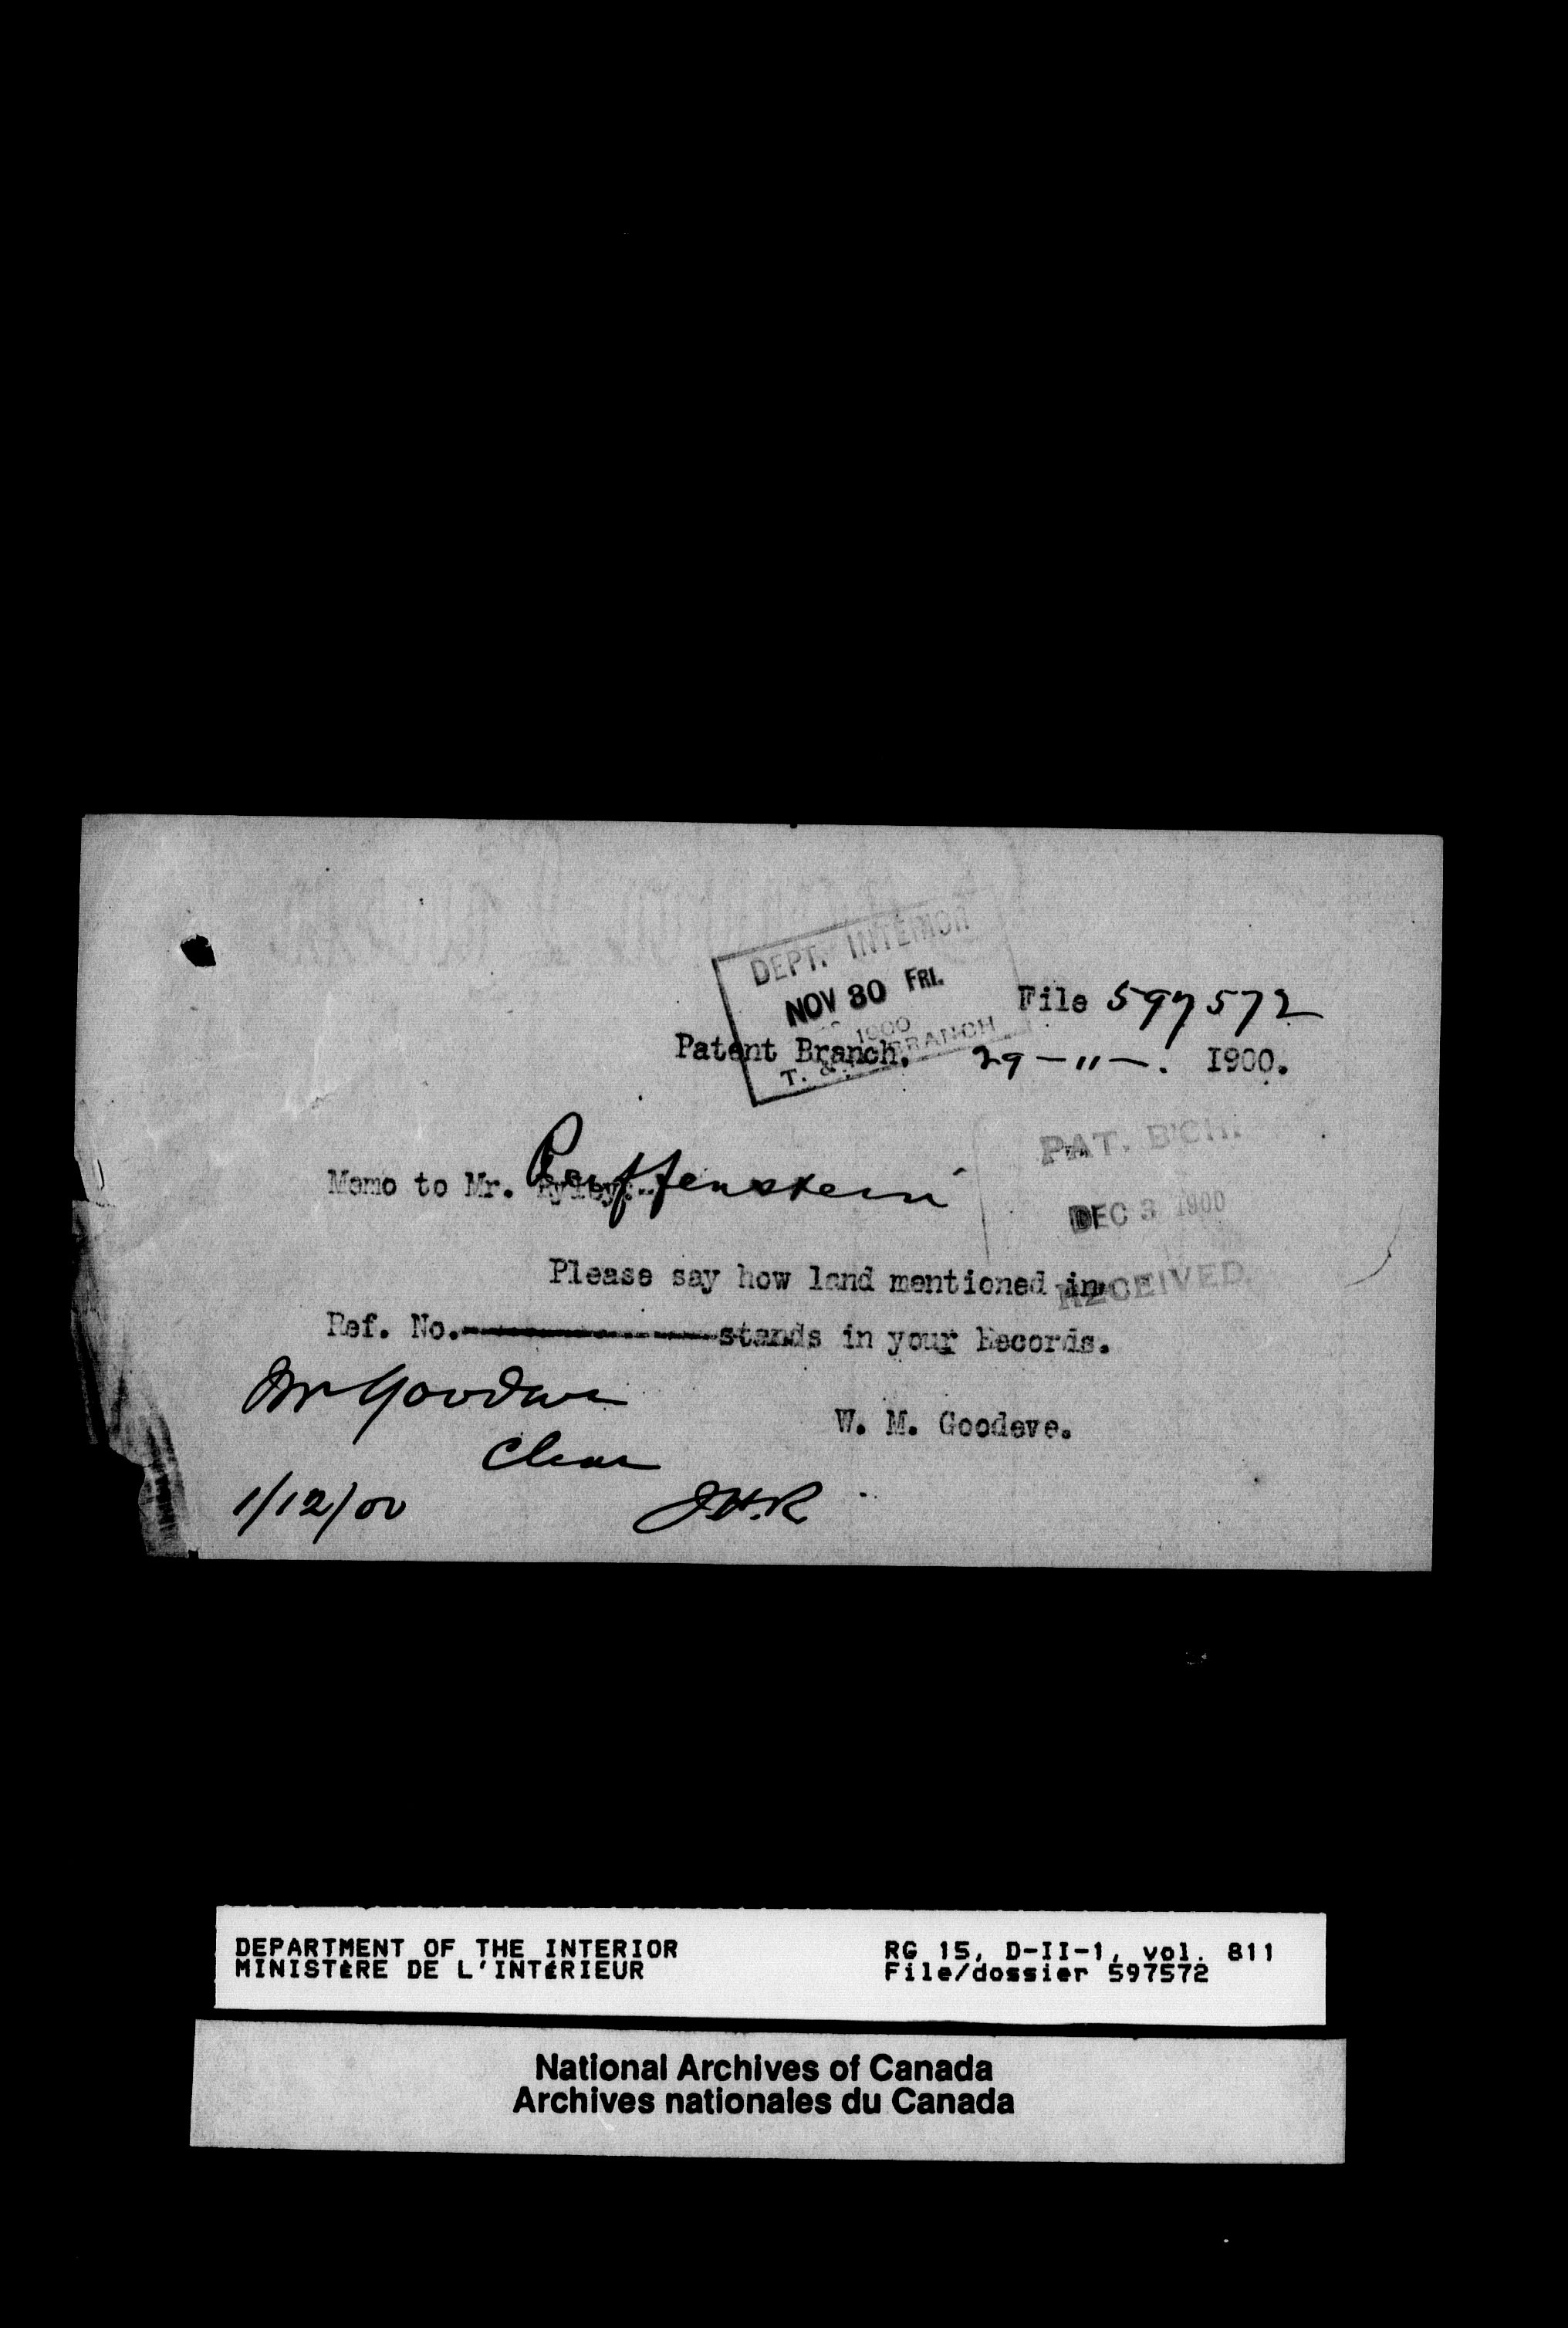 DEPT. INTERIOR
NOV 30 FRI.
1900
T. & BRANCH
File 597572
Patent Branch, 29 - 11 - . 1900.
PAT. B'CH.
DEC 3 1900
RECEIVED
Memo to Mr. Ryley:- Ruffenstein
Please say how land mentioned in
Ref. No. stands in your Records.
Mr Goodeve
W. M. Goodeve.
Clear
1/12/00 J.H.R.
DEPARTMENT OF THE INTERIOR
MINISTÈRE DE L'INTÉRIEUR
RG 15, D-II-1, vol. 811
File/dossier 597572
National Archives of Canada
Archives nationales du Canada